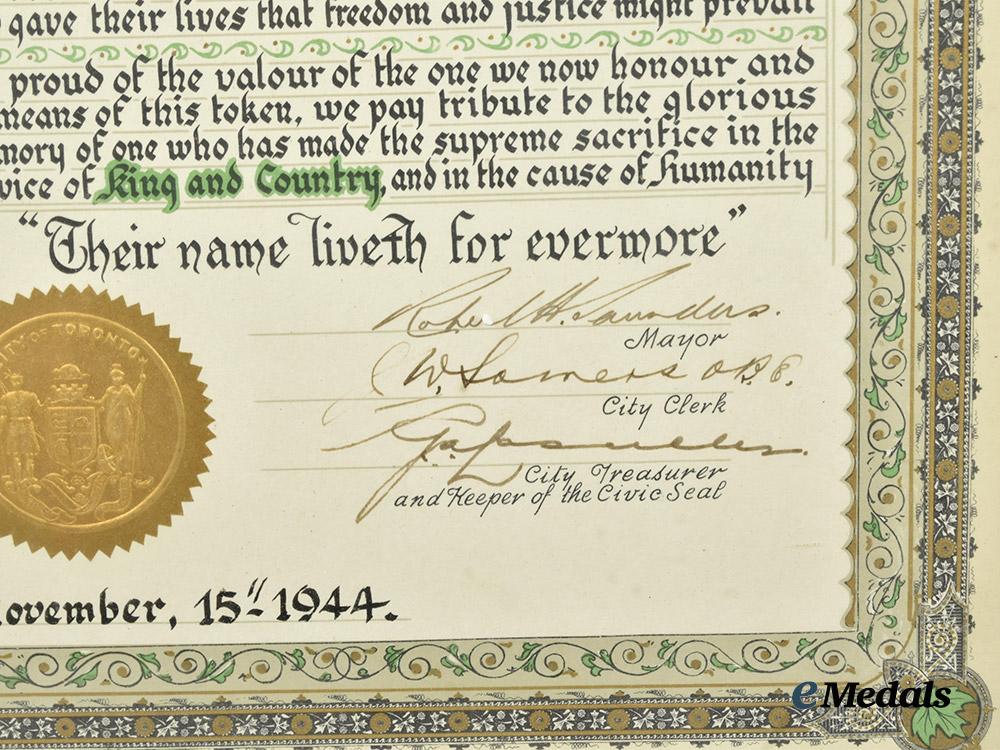 gave their lives that freedom and justice might prevail
proud of the valour of the one we now honour and
means of this token, we pay tribute to the glorious
mory of one who has made the supreme sacrifice in the
vice of King and Country, and in the cause of Humanity
"Their name liveth for evermore"
CITY OF TORONTO
Robert H. Saunders.
Mayor
W. Somers O.B.E.
City Clerk
City Treasurer
and Keeper of the Civic Seal
ovember, 15th 1944.
eMedals